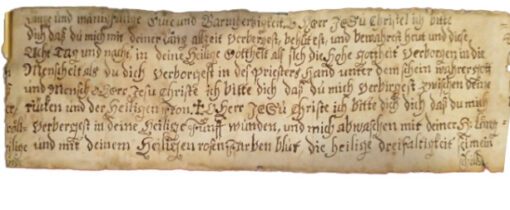 lange und mannfaltige Güte und Barmherzigkeit. O Herr JESU Christe ich bitte
dich daß du mich mit deiner lang allzeit verbergest, behütest, und bewahrest heut und diese,
Acht Tag und nacht, in deine Heilige Gottheit als sich die Hohe gottheit Verborgen in die
Menscheit als du dich Verborgest in des Priesters Hand unter dem schein wahrer gott
und Mensch O Herr Jesu Christe ich bitte dich daß du mich Verbirgest zwischen deine
rucken und der Heiligen fron. ✝ O Herr JESU Christe ich bitte dich dich daß du mich
Verbergest in deine Heilige fünff wunden, und mich abwaschen mit deiner
und mit deinem Heiligen rosenfarben blut die heilige dreifaltigkeit Amen